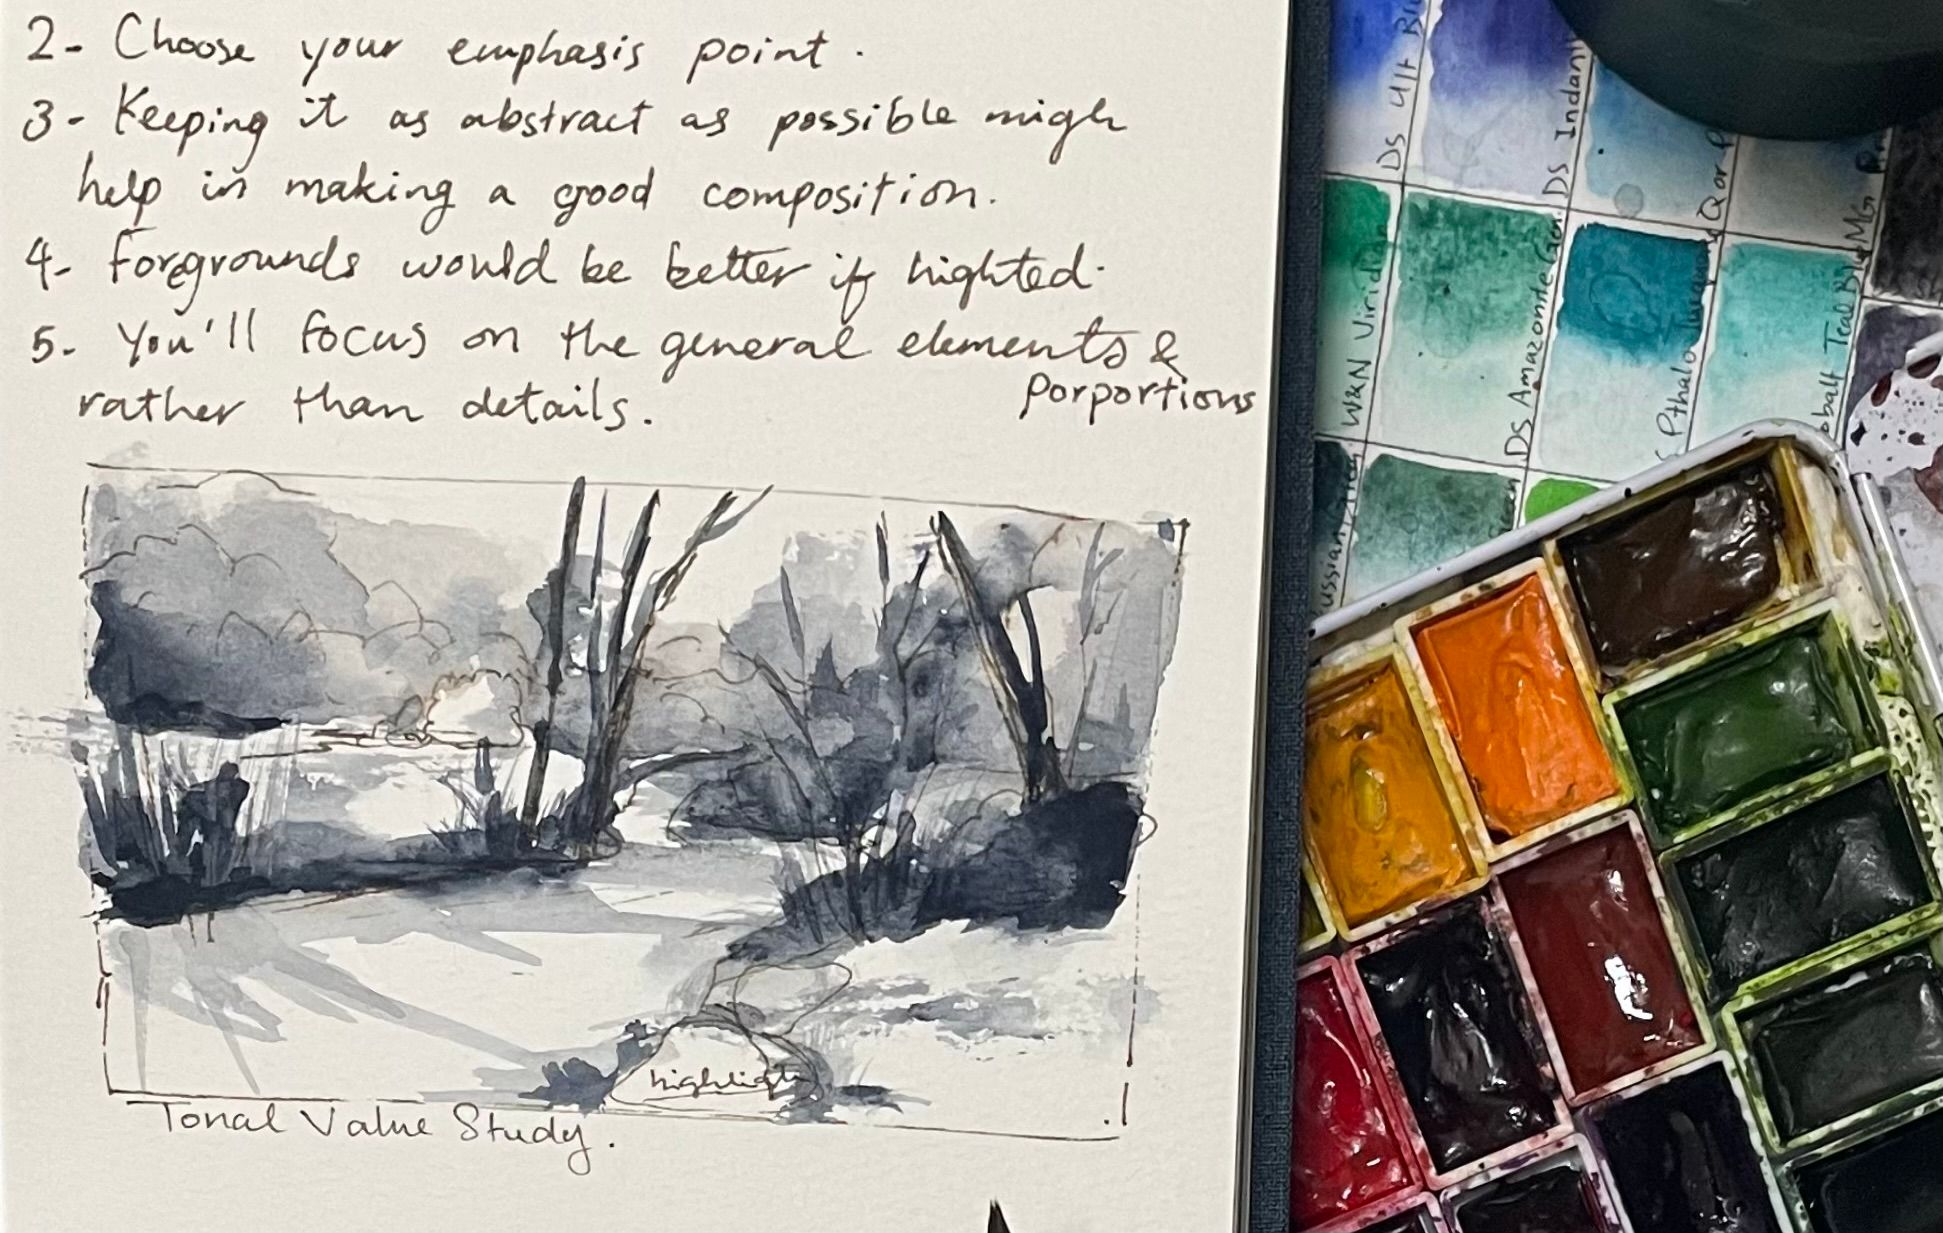 2- Choose your emphasis point.
3- Keeping it as abstract as possible migh
help in making a good composition.
4- Foregrounds would be better if highted.
5- You'll focus on the general elements &
porportions
rather than details.
highlight
Tonal Value Study.
DS Ult Bl
DS Indan
Qor P
MG Pr
W&N Viridian
DS Amazonite Gen
Pthalo Turquoi
obalt Teal Blu
ussian Green